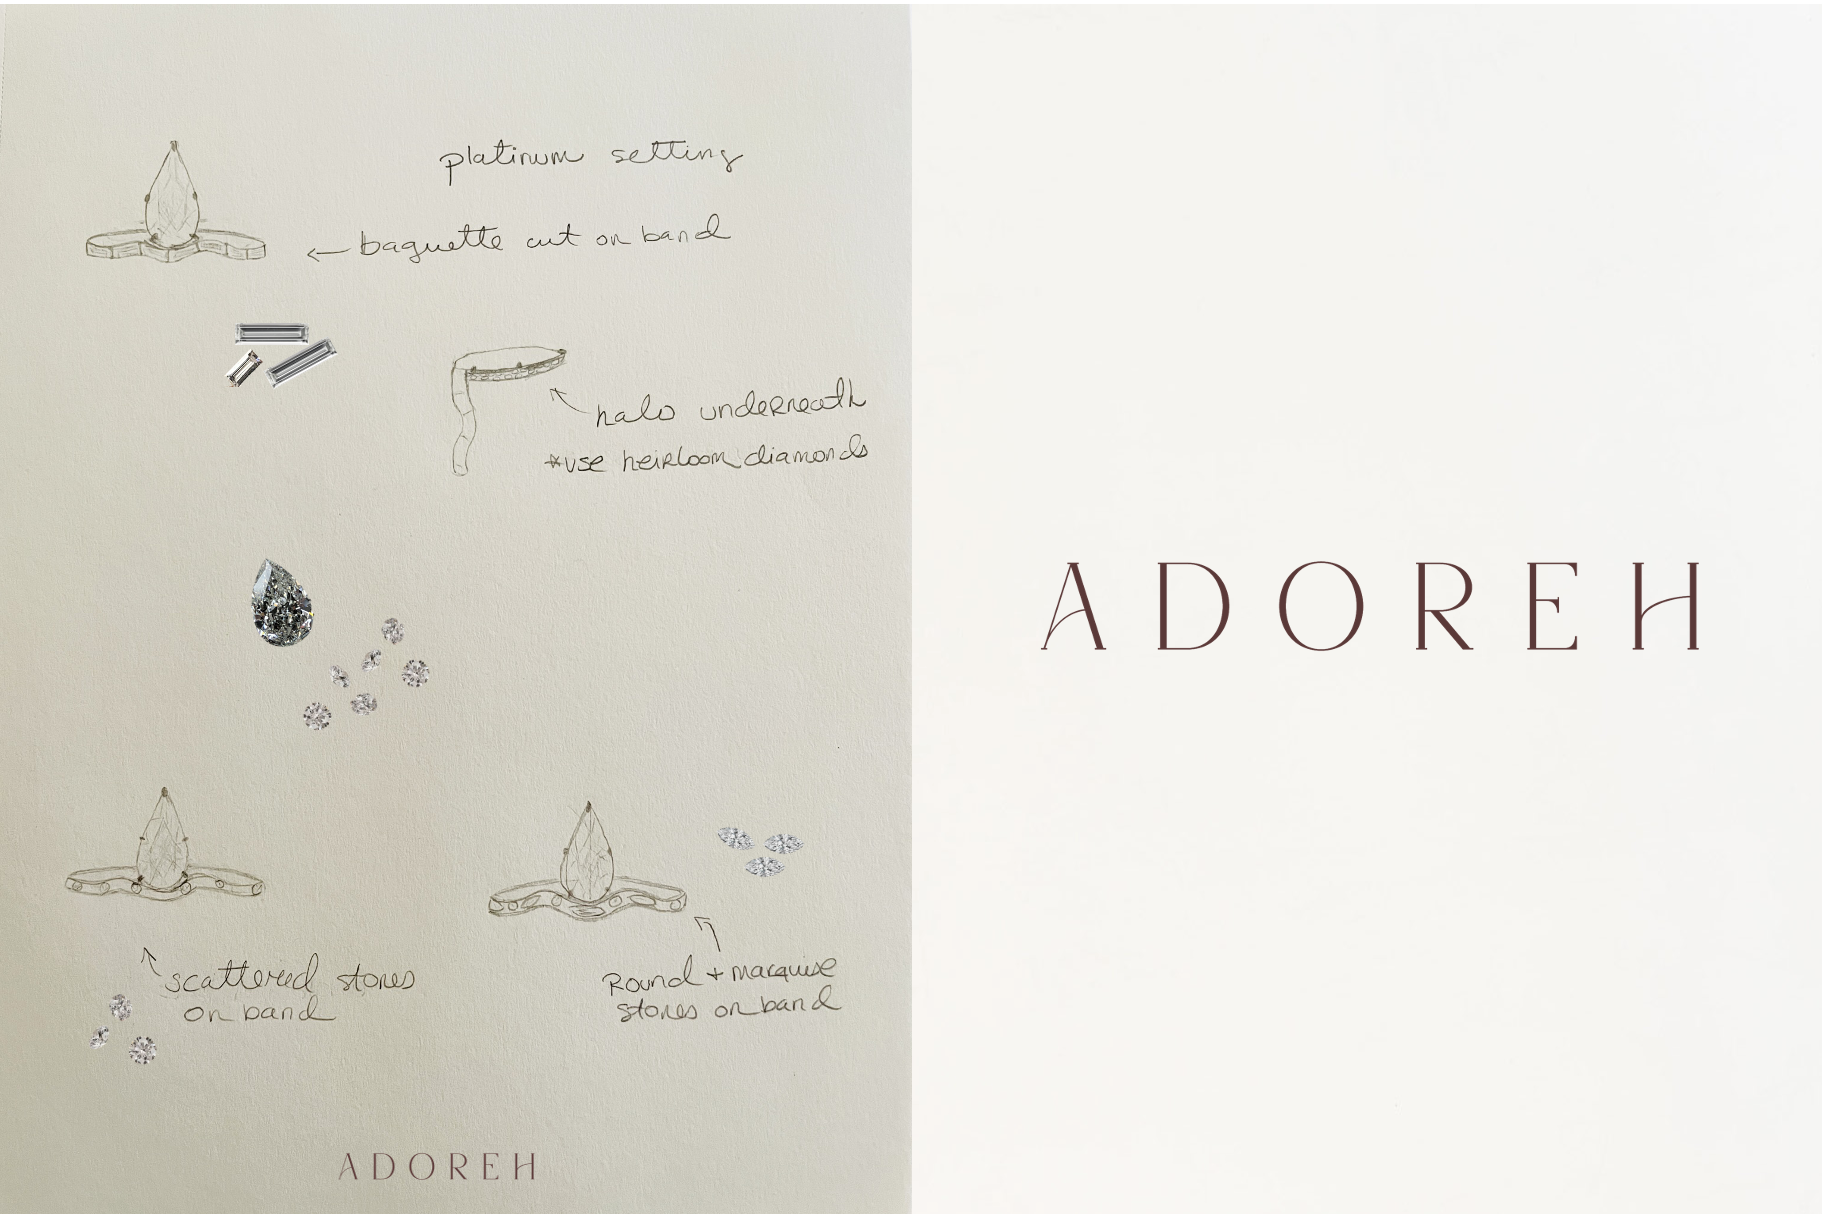 platinum setting
← baguette cut on band
halo underneath
*use heirloom diamonds
ADOREH
scattered stones
on band
Round + marquise
stones on band
ADOREH